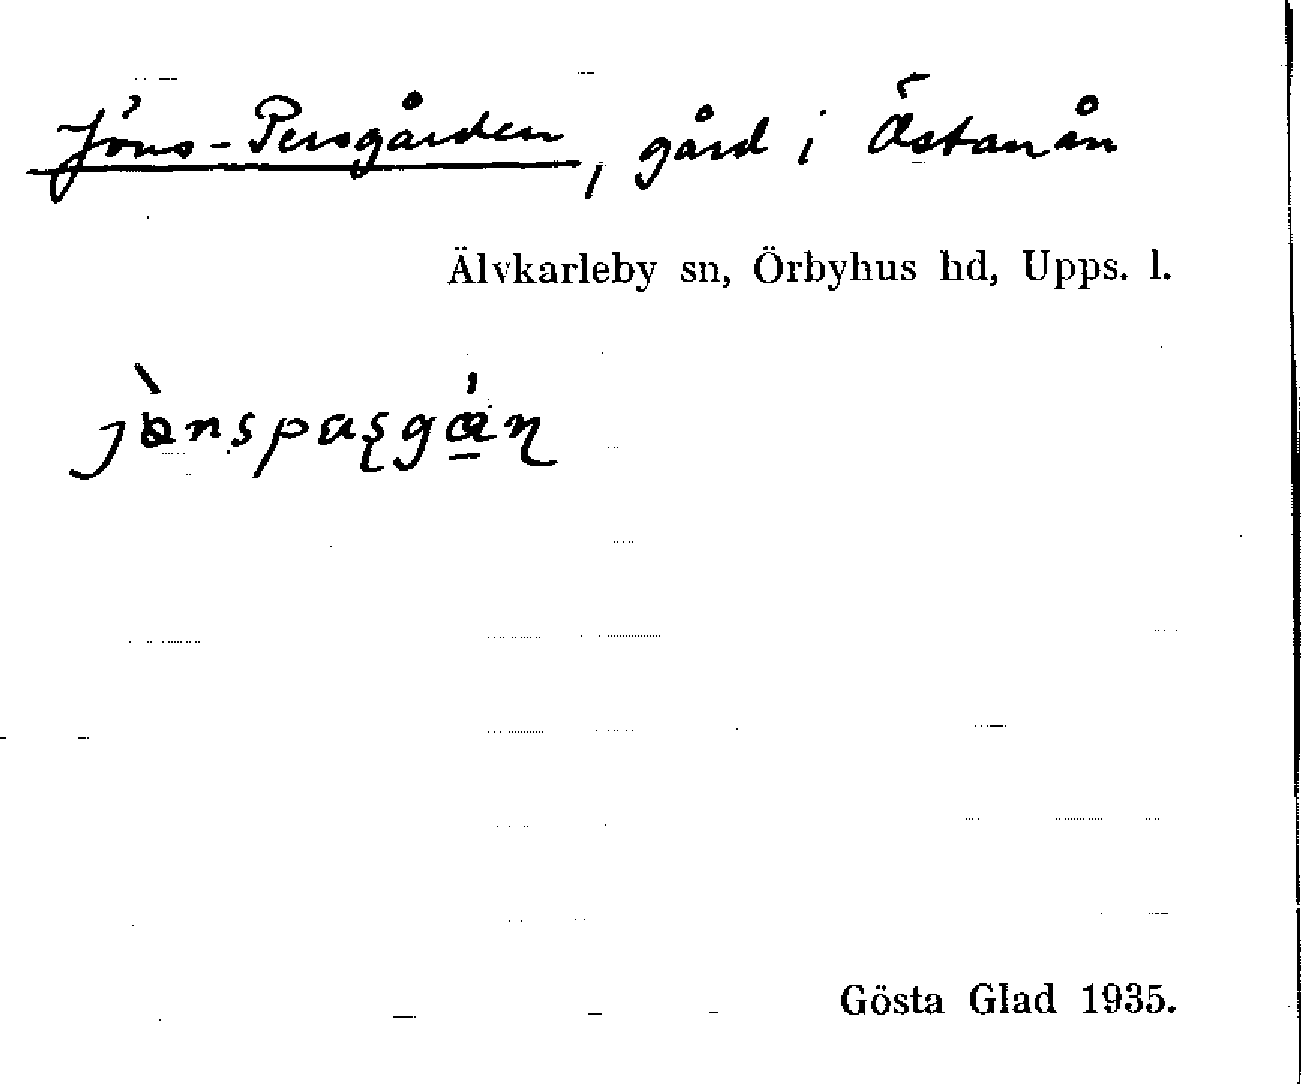 Jöns-Persgården, gård i Östanån
Älvkarleby sn, Örbyhus hd, Upps. l.
Gösta Glad 1935.